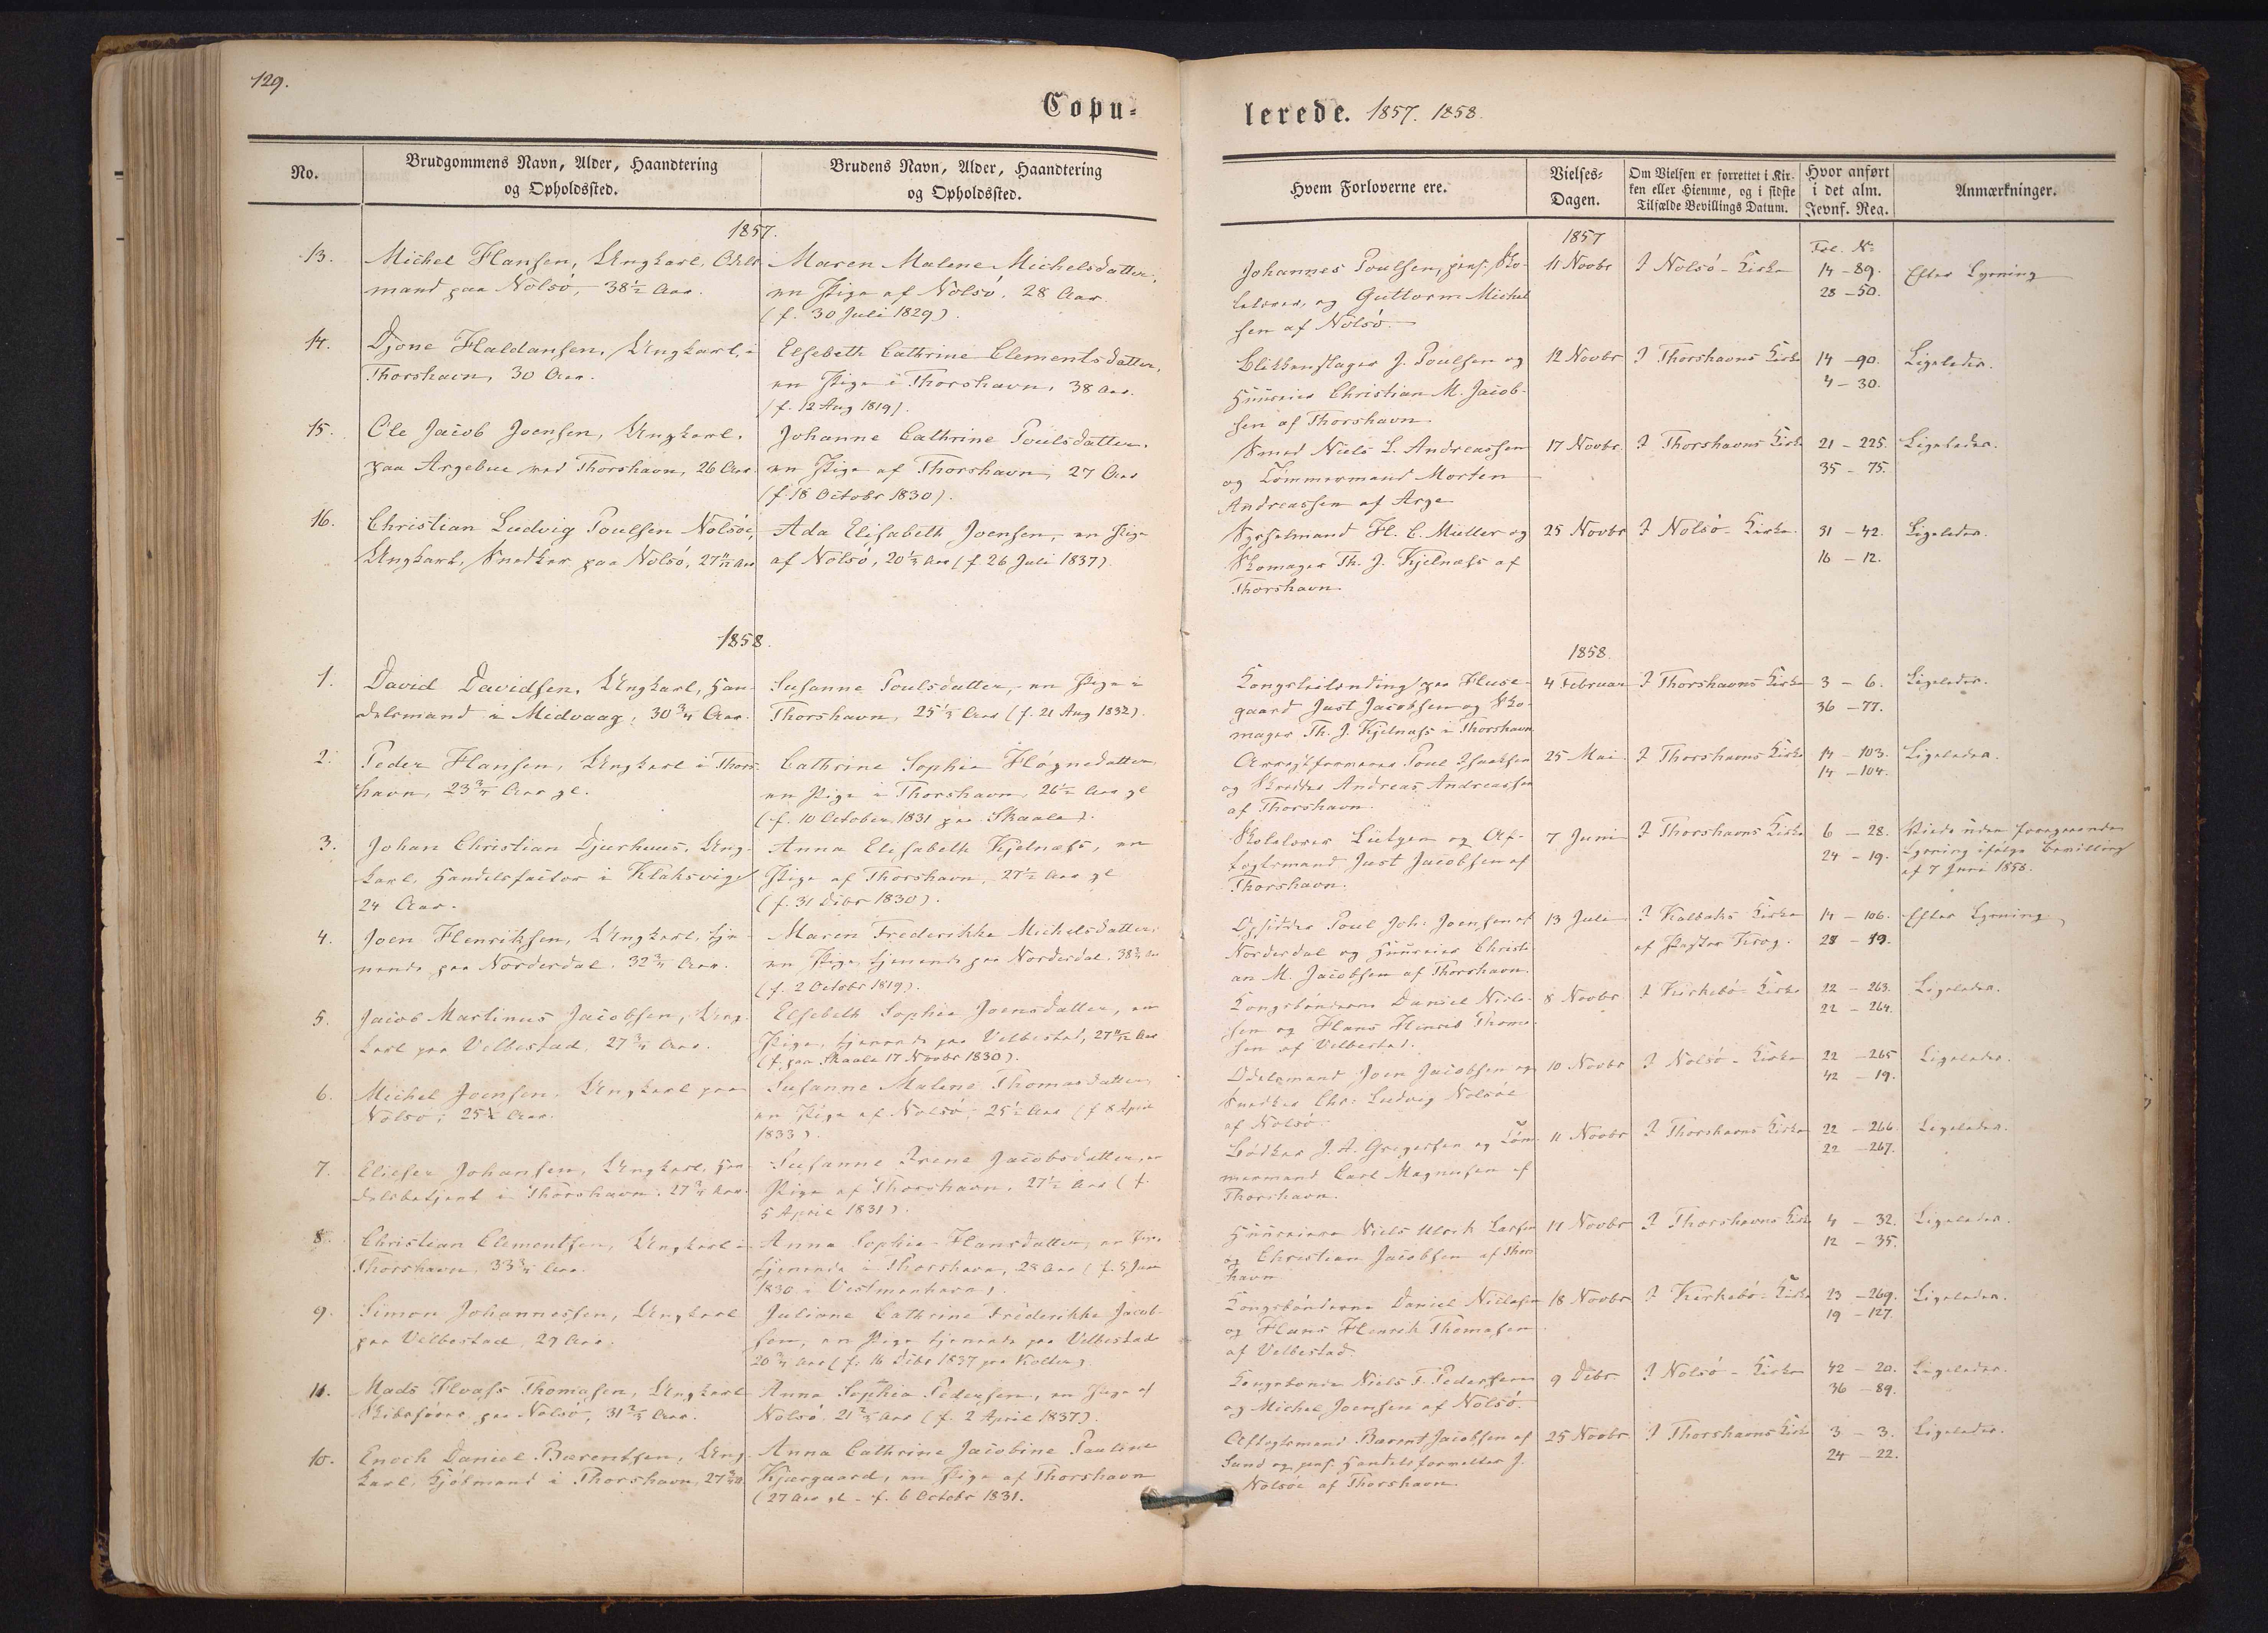 129.
Copu=
No.
Brudgommens Navn, Alder, Haandtering
og Opholdssted.
Brudens Navn, Alder, Haandtering
og Opholdssted.
1857.
13.
Michel Hansen, Ungkarl, Odels
mand paa Nolsö, 38½ Aar.
Maren Malene Michelsdatter,
en Pige af Nolsö, 28 Aar
(f. 30 Juli 1829).
14.
Djone Haldansen, Ungkarl, i
Thorshavn, 30 Aar.
Elsebeth Cathrine Clementsdatter,
en Pige i Thorshavn, 38 Aar.
(f. 12 Aug 1819).
15.
Ole Jacob Joensen, Ungkarl,
paa Argebue ved Thorshavn, 26 Aar.
Johanne Cathrine Poulsdatter,
en Pige af Thorshavn, 27 Aar
(f. 18 Octobr 1830).
16.
Christian Ludvig Poulsen Nolsöe,
Ungkarl, Snedker paa Nolsö, 27 11/12 Aar
Ada Elisabeth Joensen, en Pige
af Nolsö, 20⅓ Aar (f 26 Juli 1837)
1858.
1.
David Davidsen, Ungkarl, Han-
delsmand i Midvaag, 30¾ Aar.
Susanne Poulsdatter, en Pige i
Thorshavn, 25⅓ Aar (f. 21 Aug 1832).
2.
Peder Hansen, Ungkarl i Thors-
havn, 23¾ Aar gl.
Cathrine Sophie Högnedatter,
en Pige i Thorshavn, 26½ Aar gl
(f. 10 October 1831 paa Skaale).
3.
Johan Christian Djurhuus, Ung-
karl, Handelsfactor i Klaksvig
24 Aar.
Anna Elisabeth Kjelnæss, en
Pige af Thorshavn, 27½ Aar gl
(f. 31 Debr 1830).
4.
Joen Henriksen, Ungkarl, tje-
nende paa Norderdal, 32¾ Aar.
Maren Frederikke Michelsdatter,
en Pige, tjenende paa Norderdal, 38¾ Aar
(f. 2 Octobr 1819).
5.
Jacob Martinus Jacobsen, Ung-
karl paa Velbestad, 27¾ Aar.
Elsebeth Sophie Joensdatter, en
Pige, tjenende paa Velbestad, 27 11/12 Aar
(f. paa Skaale 17 Novbr 1830).
6.
Michel Joensen, Ungkarl paa
Nolsö, 25½ Aar.
Susanne Malene Thomasdatter,
en Pige af Nolsö, 25½ Aar (f 8 April
1833).
7.
Elieser Johansen, Ungkarl, Han-
delsbetjent i Thorshavn, 27¾ Aar.
Susanne Irene Jacobsdatter, en
Pige af Thorshavn, 27½ Aar (f.
5 April 1831).
8.
Christian Clementsen, Ungkarl i
Thorshavn 33¾ Aar.
Anna Sophie Hansdatter, en Pige,
tjenende i Thorshavn, 28 Aar (f. 5 Juni
1830 i Vestmanhavn).
9.
Simon Johannessen, Ungkarl
paa Velbestad, 29 Aar.
Juliane Cathrine Frederikke Jacob-
sen, en Pige tjenende paa Velbestad
20¾ Aar (f. 16 Debr 1837 paa Kolter).
11.
Mads Hvass Thomasen, Ungkarl
Skibsförer paa Nolsö, 31⅔ Aar.
Anna Sophia Pedersen, en Pige af
Nolsö, 21⅔ Aar (f. 2 April 1837).
10.
Enoch Daniel Barentsen, Ung-
karl, Kjöbmand i Thorshavn, 27
Anna Cathrine Jacobine Pauline
Kjærgaard, en Pige af Thorshavn
(27 Aar gl - f. 6 Octobr 1831.
lerede. 1857. 1858.
Hvem Forloverne ere.
Vielses=
Dagen.
Om Vielsen er forrettet i Kir=
ken eller Hjemme, og i sidste
Tilfælde Bevillings Datum.
Hvor anført
i det alm.
Jevnf. Reg.
Anmærkninger.
1857
Fol. No
Johannes Poulsen, pens. Sko-
lelærer, og Guttorm Michel
sen af Nolsö.
11 Novbr
I Nolsö-Kirke
14 - 89.
28 - 50.
Efter Lysning
Blikkenslager J. Poulsen og
Huuseier Christian M. Jacob-
sen af Thorshavn.
12 Novbr
I Thorshavns Kirke
14 - 90.
4 - 30.
Ligeledes.
Smed Niels L. Andreassen
og Tömmermand Morten
Andreassen af Arge
17 Novbr
I Thorshavns Kirke
21 - 225.
35 - 75.
Ligeledes.
Sysselmand H. C. Müller og
Skomager Th. J. Kjelnæss af
Thorshavn.
25 Novbr
I Nolsö-Kirke.
31 - 42.
16 - 12.
Ligeledes.
1858.
Kongsleilending paa Huse-
gaard Just Jacobsen og Sko-
mager Th. J. Kjelnæss i Thorshavn
4 Februar
I Thorshavns Kirke
3 - 6.
36 - 77.
Ligeledes.
Arrestforvarer Poul Isaksen
og Skredder Andreas Andreassen
af Thorshavn.
25 Mai
I Thorshavns Kirke
14 - 103.
14 - 104.
Ligeledes.
Skolelærer Lützen og Af-
tægtsmand Just Jacobsen af
Thorshavn.
7 Juni
I Thorshavns Kirke
6 - 28.
24 - 19.
Viede uden foregaaende
Lysning ifølge Bevilling
af 7 Juni 1858.
Opsidder Poul Joh: Joensen af
Norderdal og Huuseier Christi-
an M. Jacobsen af Thorshavn.
13 Juli
I Kalbaks Kirke
af Pastor Krog.
14 - 106.
28 - 49.
Efter Lysning
Kongsbönderne Daniel Niels-
sen og Hans Henrik Thoma-
sen af Velbestad.
8 Novbr
I Kirkebö-Kirke
22 - 263.
22 - 264.
Ligeledes.
Odelsmand Joen Jacobsen og
Snedker Chr: Ludvig Nolsöe
af Nolsö.
10 Novbr
I Nolsö-Kirke
22 - 265
42 - 19.
Ligeledes.
Bödker J. A. Gregersen og Töm-
mermand Carl Magnusen af
Thorshavn.
11 Novbr
I Thorshavns Kirke
22 - 266.
22 - 267.
Ligeledes.
Huuseierne Niels Ulrik Larsen
og Christian Jacobsen af Thors-
havn
11 Novbr
I Thorshavns Kirke
4 - 32.
12 - 35.
Ligeledes.
Kongsbönderne Daniel Nielsen
og Hans Henrik Thomasen
af Velbestad.
18 Novbr
I Kirkebö-Kirke
23 - 269.
19 - 127.
Ligeledes.
Kongsbonde Niels F. Pedersen
og Michel Joensen af Nolsö.
9 Debr
I Nolsö-Kirke
42 - 20.
36 - 89.
Ligeledes.
Aftægtsmand Barent Jacobsen af
Sund og pens. Handelsforvalter J.
Nolsöe af Thorshavn.
25 Novbr
I Thorshavns Kirke
3 - 3.
24 - 22.
Ligeledes.